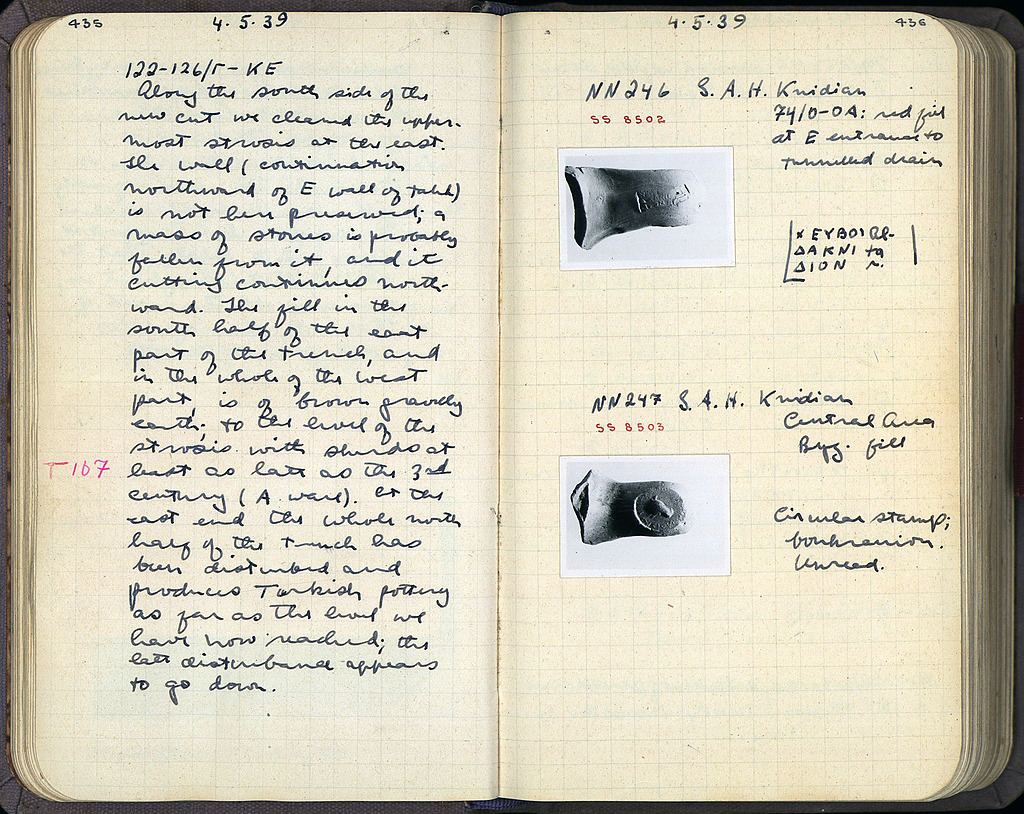 435
4.5.39
122-126/Γ-ΚΕ
Along the south side of the
new cut we cleared the upper-
most strosis at the east.
The wall (continuation
northward of E wall of
is not been preserved; a
mass of stones is probably
fallen from it, and it
cutting continues north-
ward. The fill in the
south half of the east
part of the trench, and
in the whole of the west
part, is of brown gravelly
earth; to the level of the
strosis with sherds at
T 167
least as late as the 3rd
century (A ware). At the
east end the whole north
half of the trench has
been disturbed and
produces Turkish pottery
as far as the level we
have now reached; the
late disturbance appears
to go down.
4.5.39
436
NN246 S.A.H. Knidian
SS 8502
74/Ο-ΟΔ: red fill
at E entrance to
tunnelled drain
ΕΥΒΟΙ
ΔΑΚΝΙ
ΔΙΟΝ
NN247 S.A.H. Knidian
SS 8503
Central Area
Byz. fill
Circular stamp;
boukranion.
Unread.